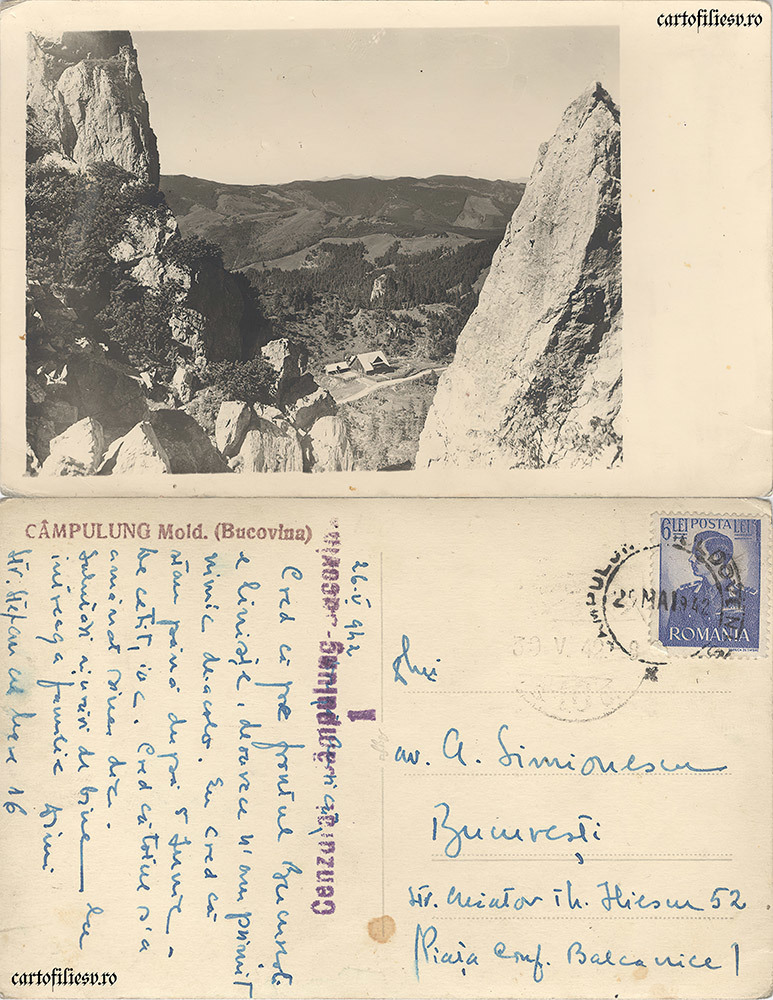 cartofiliesv.ro
CÂMPULUNG Mold. (Bucovina)
26.V 942
Cred că pe frontul București
e liniște, deoarece n'am primit
nimic de acolo. Eu cred că
stau până după 5 Iunie
Cred că s'a
amânat
Salutări și urări de bine la
întreaga familie
Str. Ștefan cel Mare 16
Cenzurat Câmpulung-Bucovina
1
6 LEI POSTA LEI 6
ROMANIA
CÂMPULUNG MOLDOVENESC
29 MAI 942
30 V. 42
D-lui
av. A. Simionescu
București
Str. Aviator Th. Iliescu 52
(Piața Conf. Balcanice)
cartofiliesv.ro